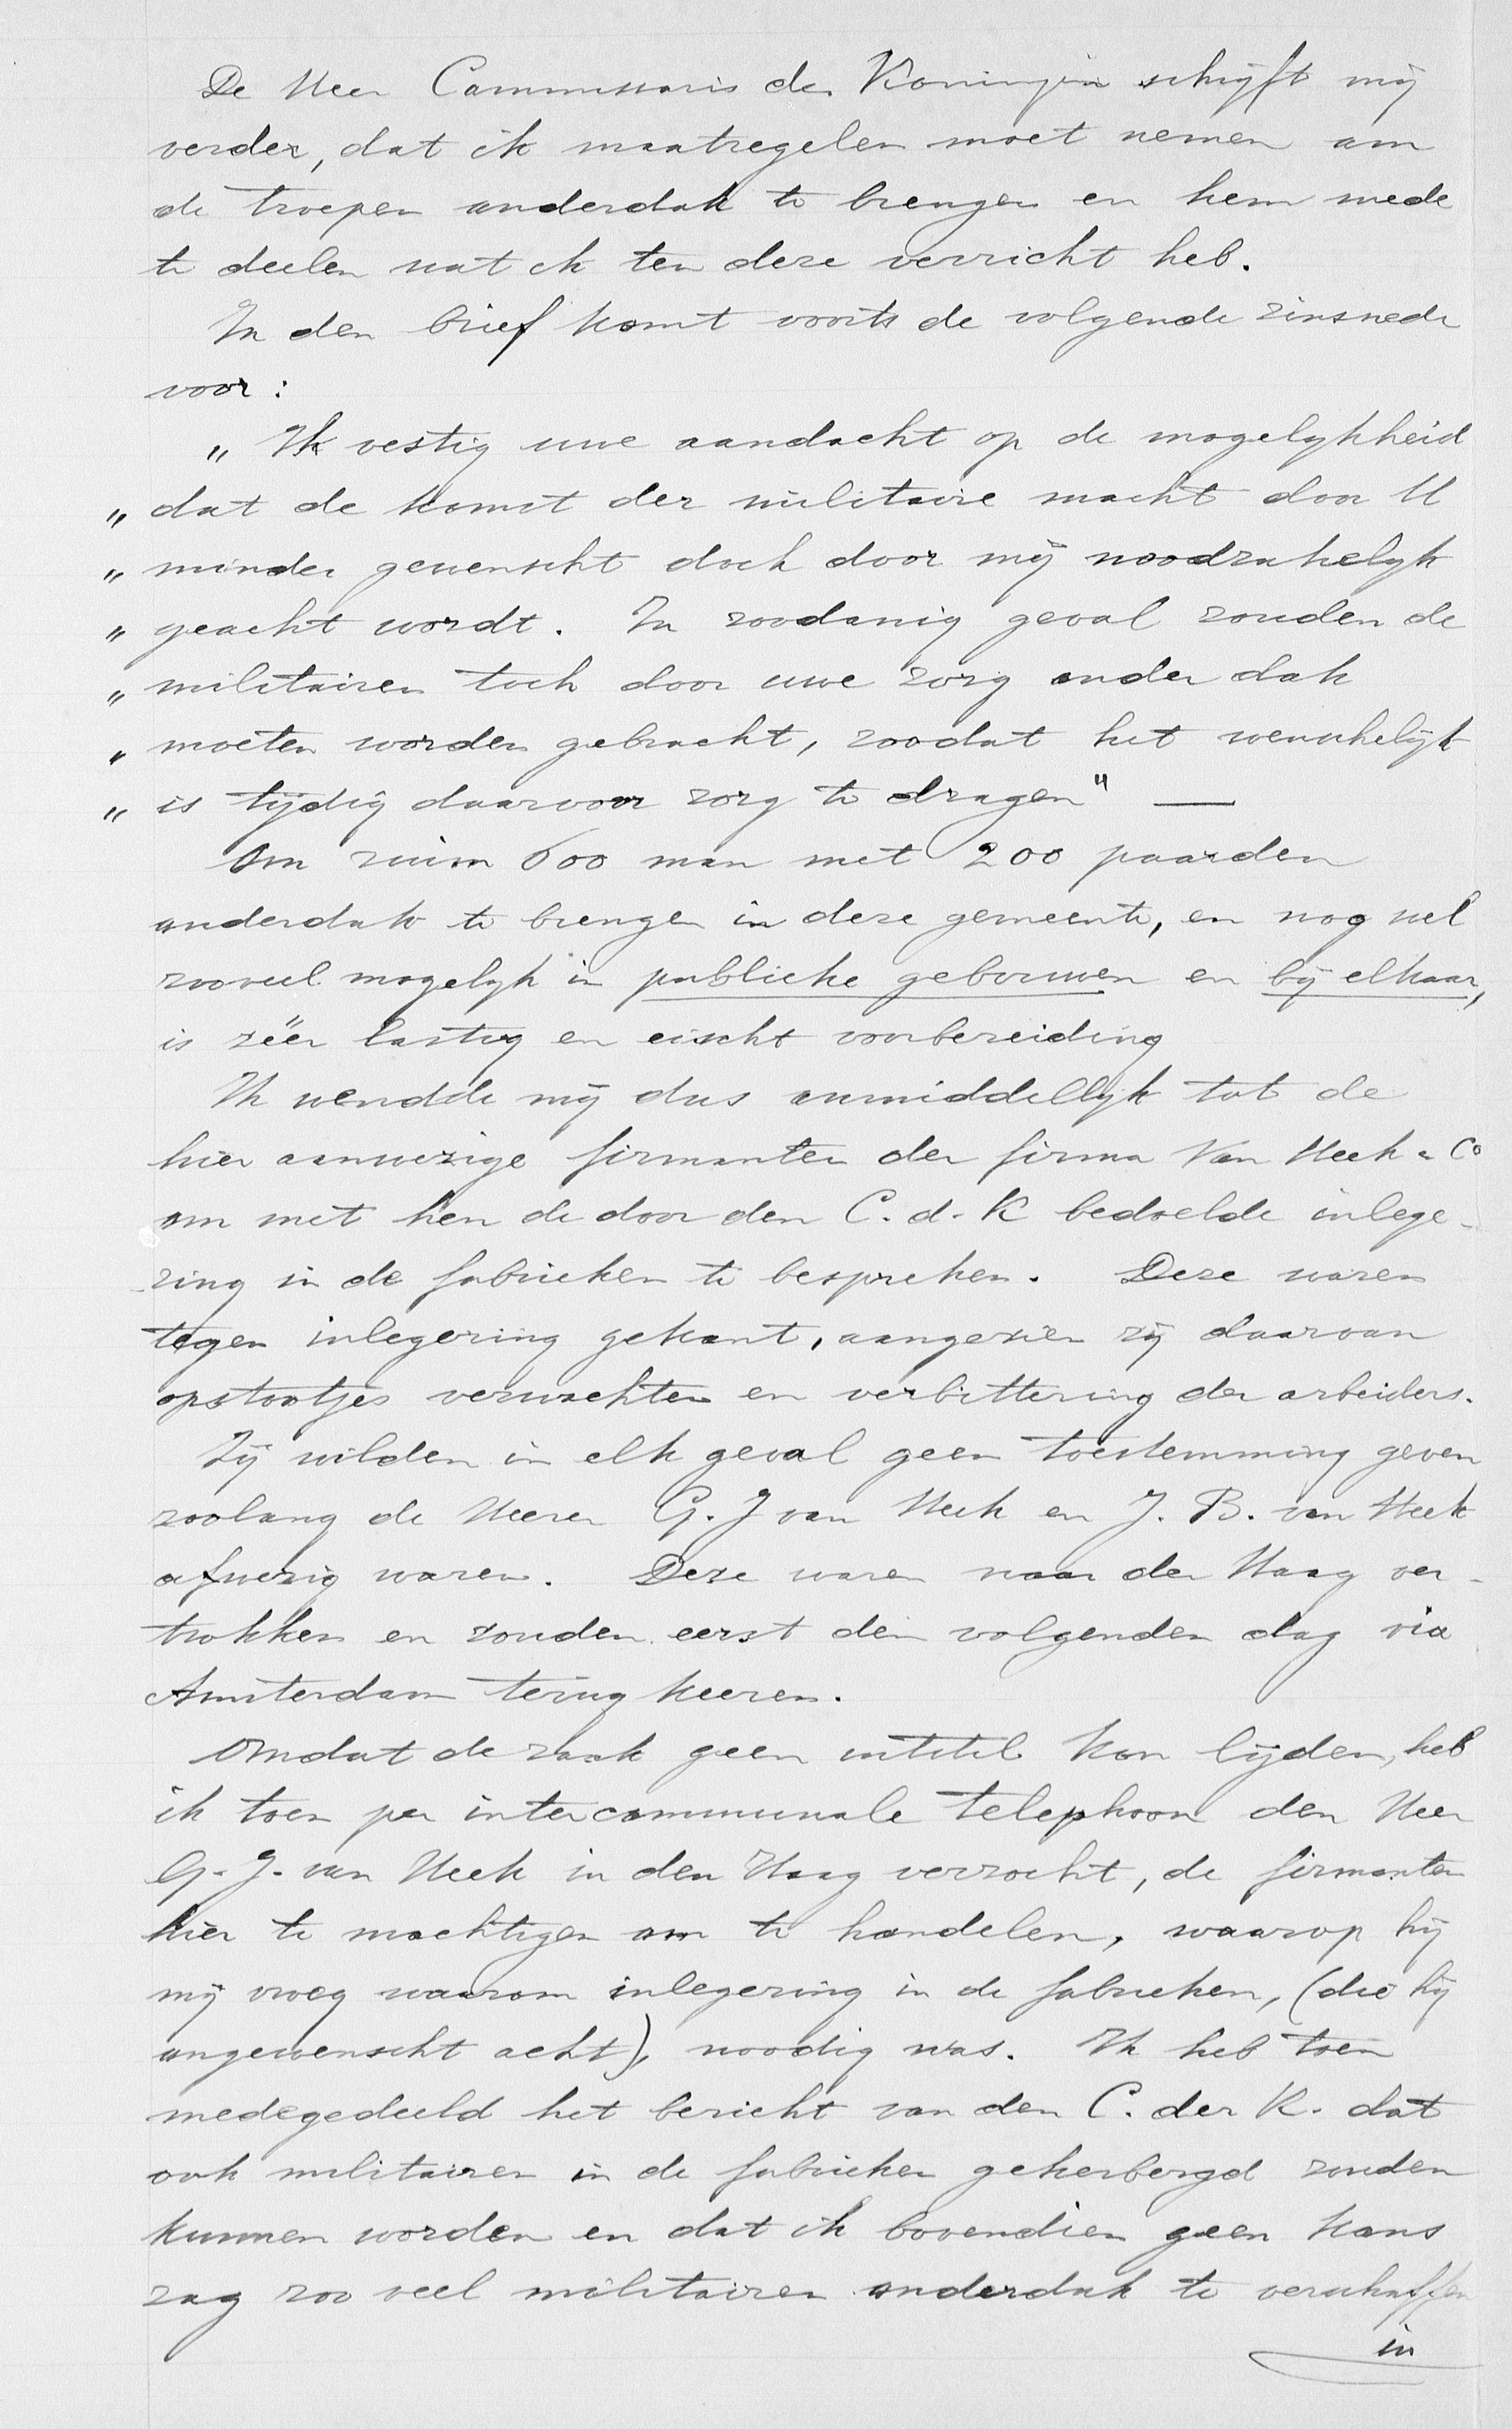 De Heer Commissaris der Koningin schrijft mij
verder, dat ik maatregelen moet nemen om
de troepen onderdak te brengen en hem mede
te deelen wat ik ten deze verricht heb.
In den brief komt voorts de volgende zinsnede
voor:
„ Ik vestig uwe aandacht op de mogelijkheid
„ dat de komst der militaire macht door U
„ minder gewenscht doch door mij noodzakelijk
„ geacht wordt. In zoodanig geval zouden de
„ militairen toch door uwe zorg onder dak
„ moeten worden gebracht, zoodat het wenschelijk
„ is tijdig daarvoor zorg te dragen" —
Om ruim 600 man met 200 paarden
onderdak te brengen in deze gemeente, en nog wel
zooveel mogelijk in publieke gebouwen en bij elkaar,
is zéér lastig en eischt voorbereiding
Ik wendde mij dus onmiddellijk tot de
hier aanwezige firmanten der firma Van Heek & Co
om met hen de door den C. d. K bedoelde inlege-
ring in de fabrieken te bespreken. Deze waren
tegen inlegering gekant, aangezien zij daarvan
opstootjes verwachten en verbittering der arbeiders.
Zij wilden in elk geval geen toestemming geven
zoolang de Heeren G. J van Heek en J. B. van Heek
afwezig waren. Deze waren naar den Haag ver-
trokken en zouden eerst den volgenden dag via
Amsterdam terug keeren.
Omdat de zaak geen uitstel kon lijden, heb
ik toen per intercommunale telephoon den Heer
G. J. van Heek in den Haag verzocht, de firmanten
hier te machtigen om te handelen, waarop hij
mij vroeg waarom inlegering in de fabrieken, (die hij
ongewenscht acht), noodig was. Ik heb toen
medegedeeld het bericht van den C. der K. dat
ook militairen in de fabrieken geherbergd zouden
kunnen worden en dat ik bovendien geen kans
zag zoo veel militairen onderdak te verschaffen
in